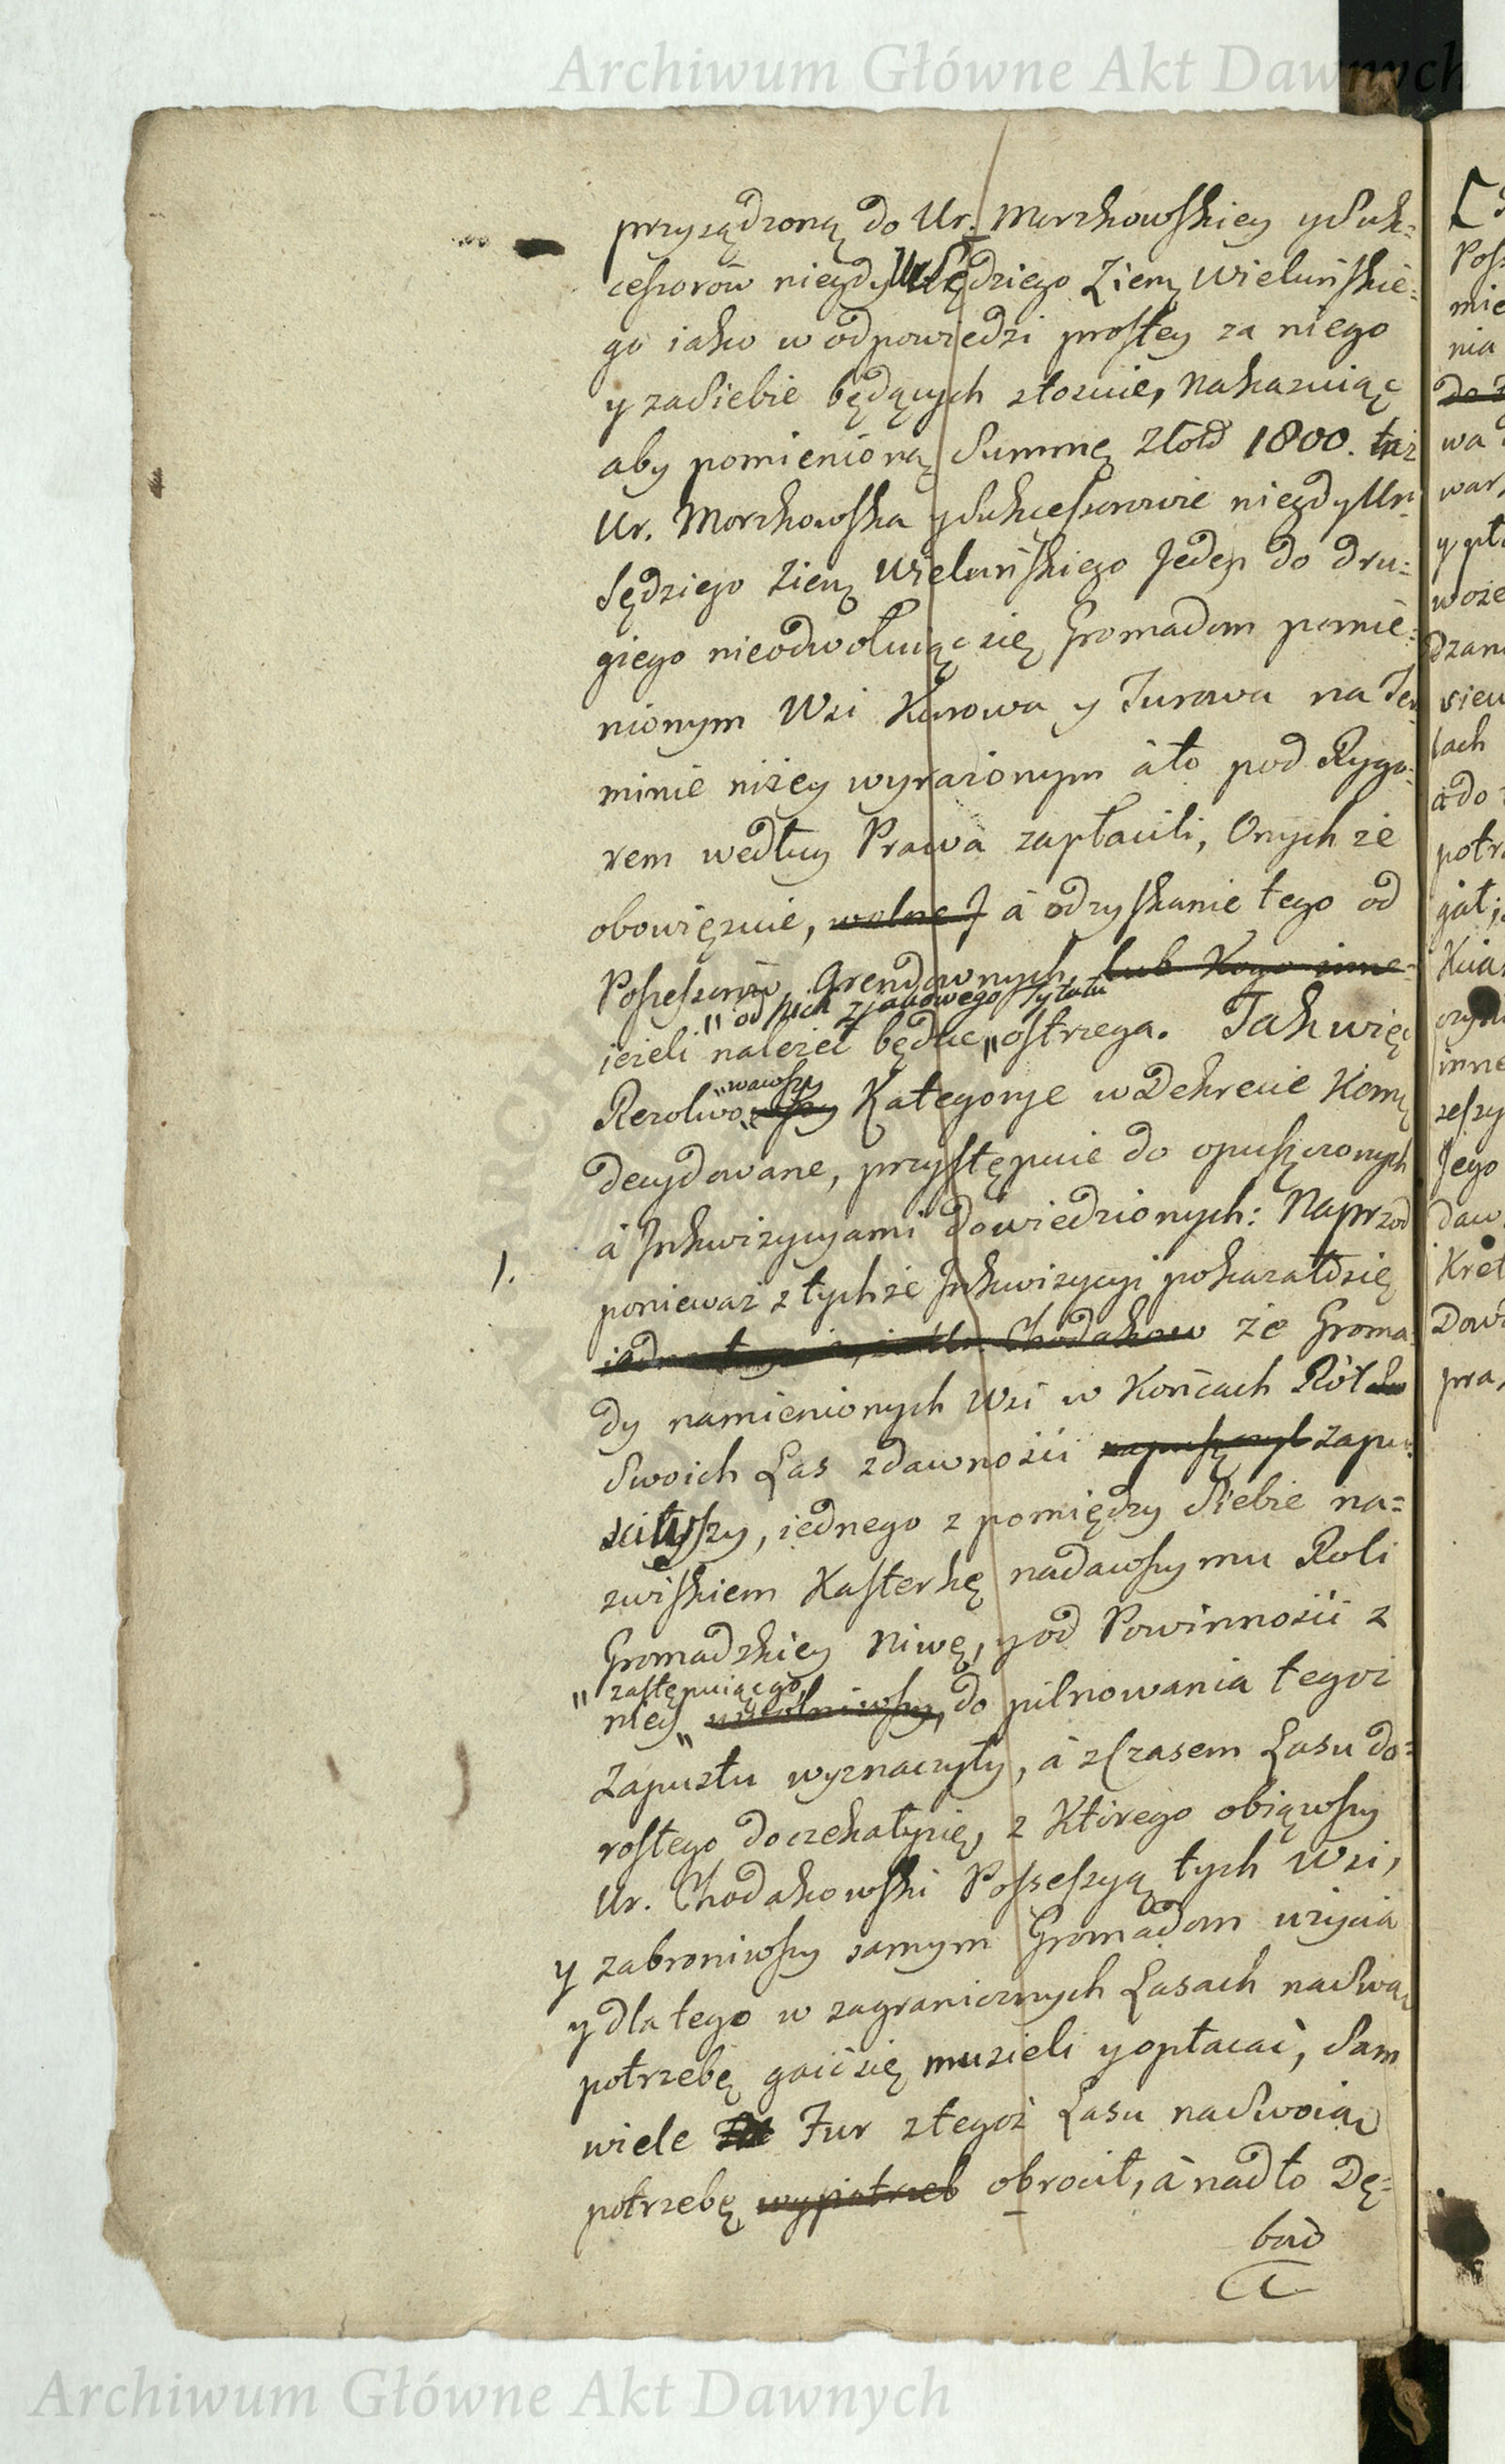 Archiwum Główne Akt Dawnych
przysądzoną do Ur. Morzkowskiey y Suk=
cessorow niegdy Ur Sędziego Ziem: Wieluńskie=
go iako w odpowiedzi prostey za niego
y za Siebie będących stosuie, nakazuiąc
aby pomienioną Summę Złotd 1800. taż
Ur. Morzkowska y Sukcessorowie niegdy Ur.
Sędziego Ziem: Wieluńskiego Jeden do dru=
giego nieodwołuiąc się Gromadom pomie=
nionym Wsi Kurowa y Turowa na Ter=
minie niżey wyrażonym à to pod Rygo=
rem według Prawa zapłacili, Onychże
obowięzuie, wolne J à odzyskanie tego od
Possessorów Arendownych, lub Kogo inne=
" od Nich z jakowego Tytułu
ieżeli należeć będzie " ostrzega. Tak więc
" wawszy
Rezolwo Kategorye w Dekrecie Kom:
decydowane, przystępuie do opuszczonych
à Inkwizycyami dowiedzionych: Naprzod
1. ponieważ z tychże Inkwizycyi pokazało się
Chodakow że Groma=
dy namienionych Wsi w Końcach Ról
Swoich Las zdawności zapuszczył zapu=
ściwszy, iednego z pomiędzy Siebie na=
zwiskiem Kasterkę nadawszy mu Roli
Gromadzkiey Niwę, y od Powinności z
" zastępuiącego,
niey " uwolniwszy, do pilnowania tegoż
Zapustu wyznaczyły, à z Czasem Lasu do=
rosłego doczekały się, z Którego obiąwszy
Ur. Chodakowski Possessyą tych Wsi,
y zabroniwszy samym Gromadom użycia
y dla tego w zagranicznych Lasach na Swą
potrzebę gaić się musieli y opłacać, Sam
wiele Fur z tegoż Lasu na Swoią
potrzebę wypotrzeb obrocił, à nadto Dę=
bow
Archiwum Główne Akt Dawnych